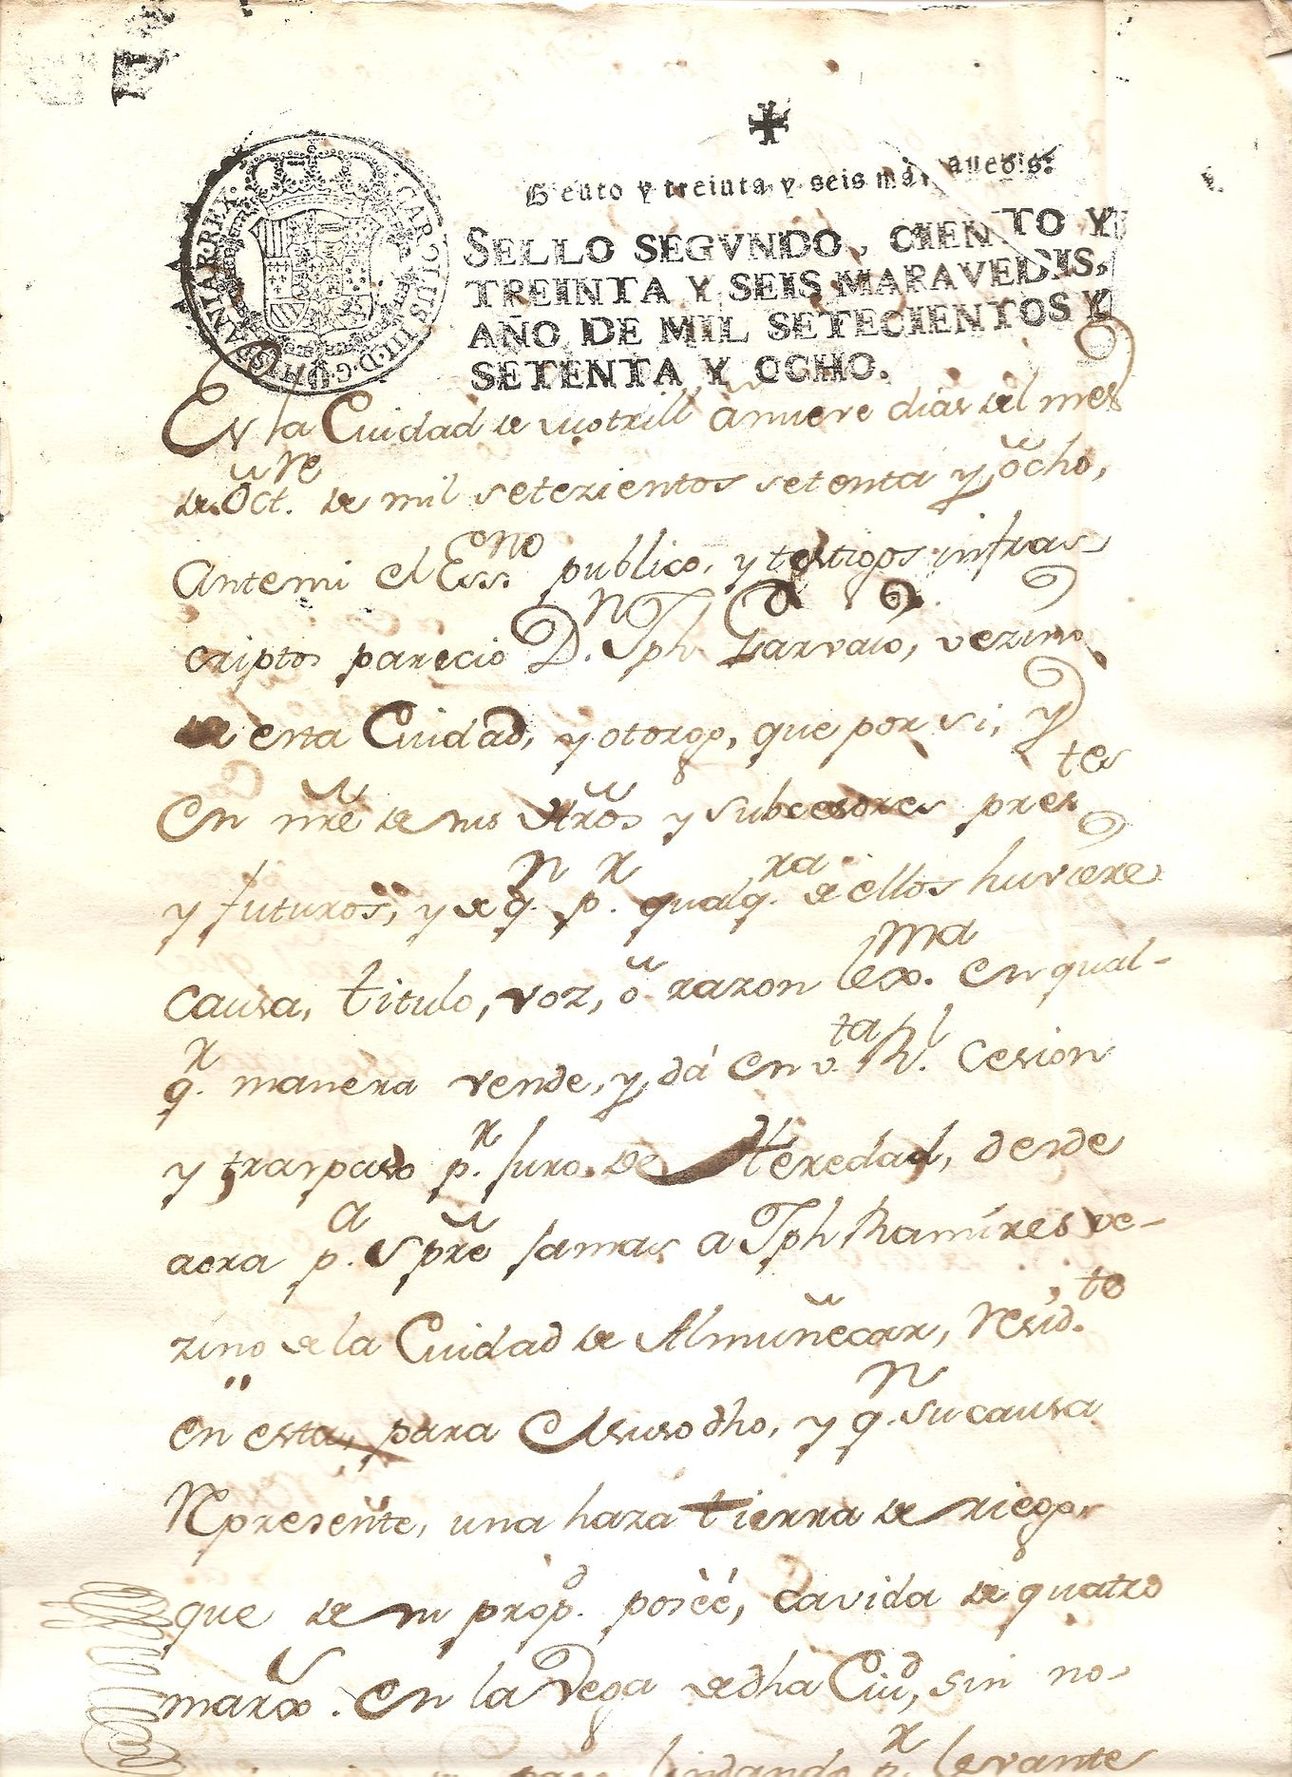 CAROLUS III D G HISPANIAR REX
Ciento y treinta y seis maravedis.
SELLO SEGVNDO, CIENTO Y
TREINTA Y SEIS MARAVEDIS,
AÑO DE MIL SETECIENTOS Y
SETENTA Y OCHO.
En la Ciudad de Motrill â nueve dias del mes
de Oct.re de mil setezientos setenta y ôcho,
Antemi el Ess.no publico, y testigos infras
criptos parecio D.n Jph Garvaio, vezino
de esta Ciudad, y otorgo, que por si, y
en nrê de sus Hrôs y subcesores pres.tes
y futuros, y de q.n p.r qualq.ra de ellos huviere
causa, titulo, voz, ô razon lexma. en qual-
q.r manera vende, y dá en v.ta R.l Cesion
y traspaso p.r Juro de Heredad, desde
aora p.a Sprê Jamas a Jph Ramíres ve-
zino de la Ciudad de Almuñecar, resid.te
en esta, para el susodho, y q.n su causa
Represente, una haza tierra de riego,
que de su prop.d posèé, cavida de quatro
marx. en la Vega de dha Ciud, sin no-
lindando p.r levante